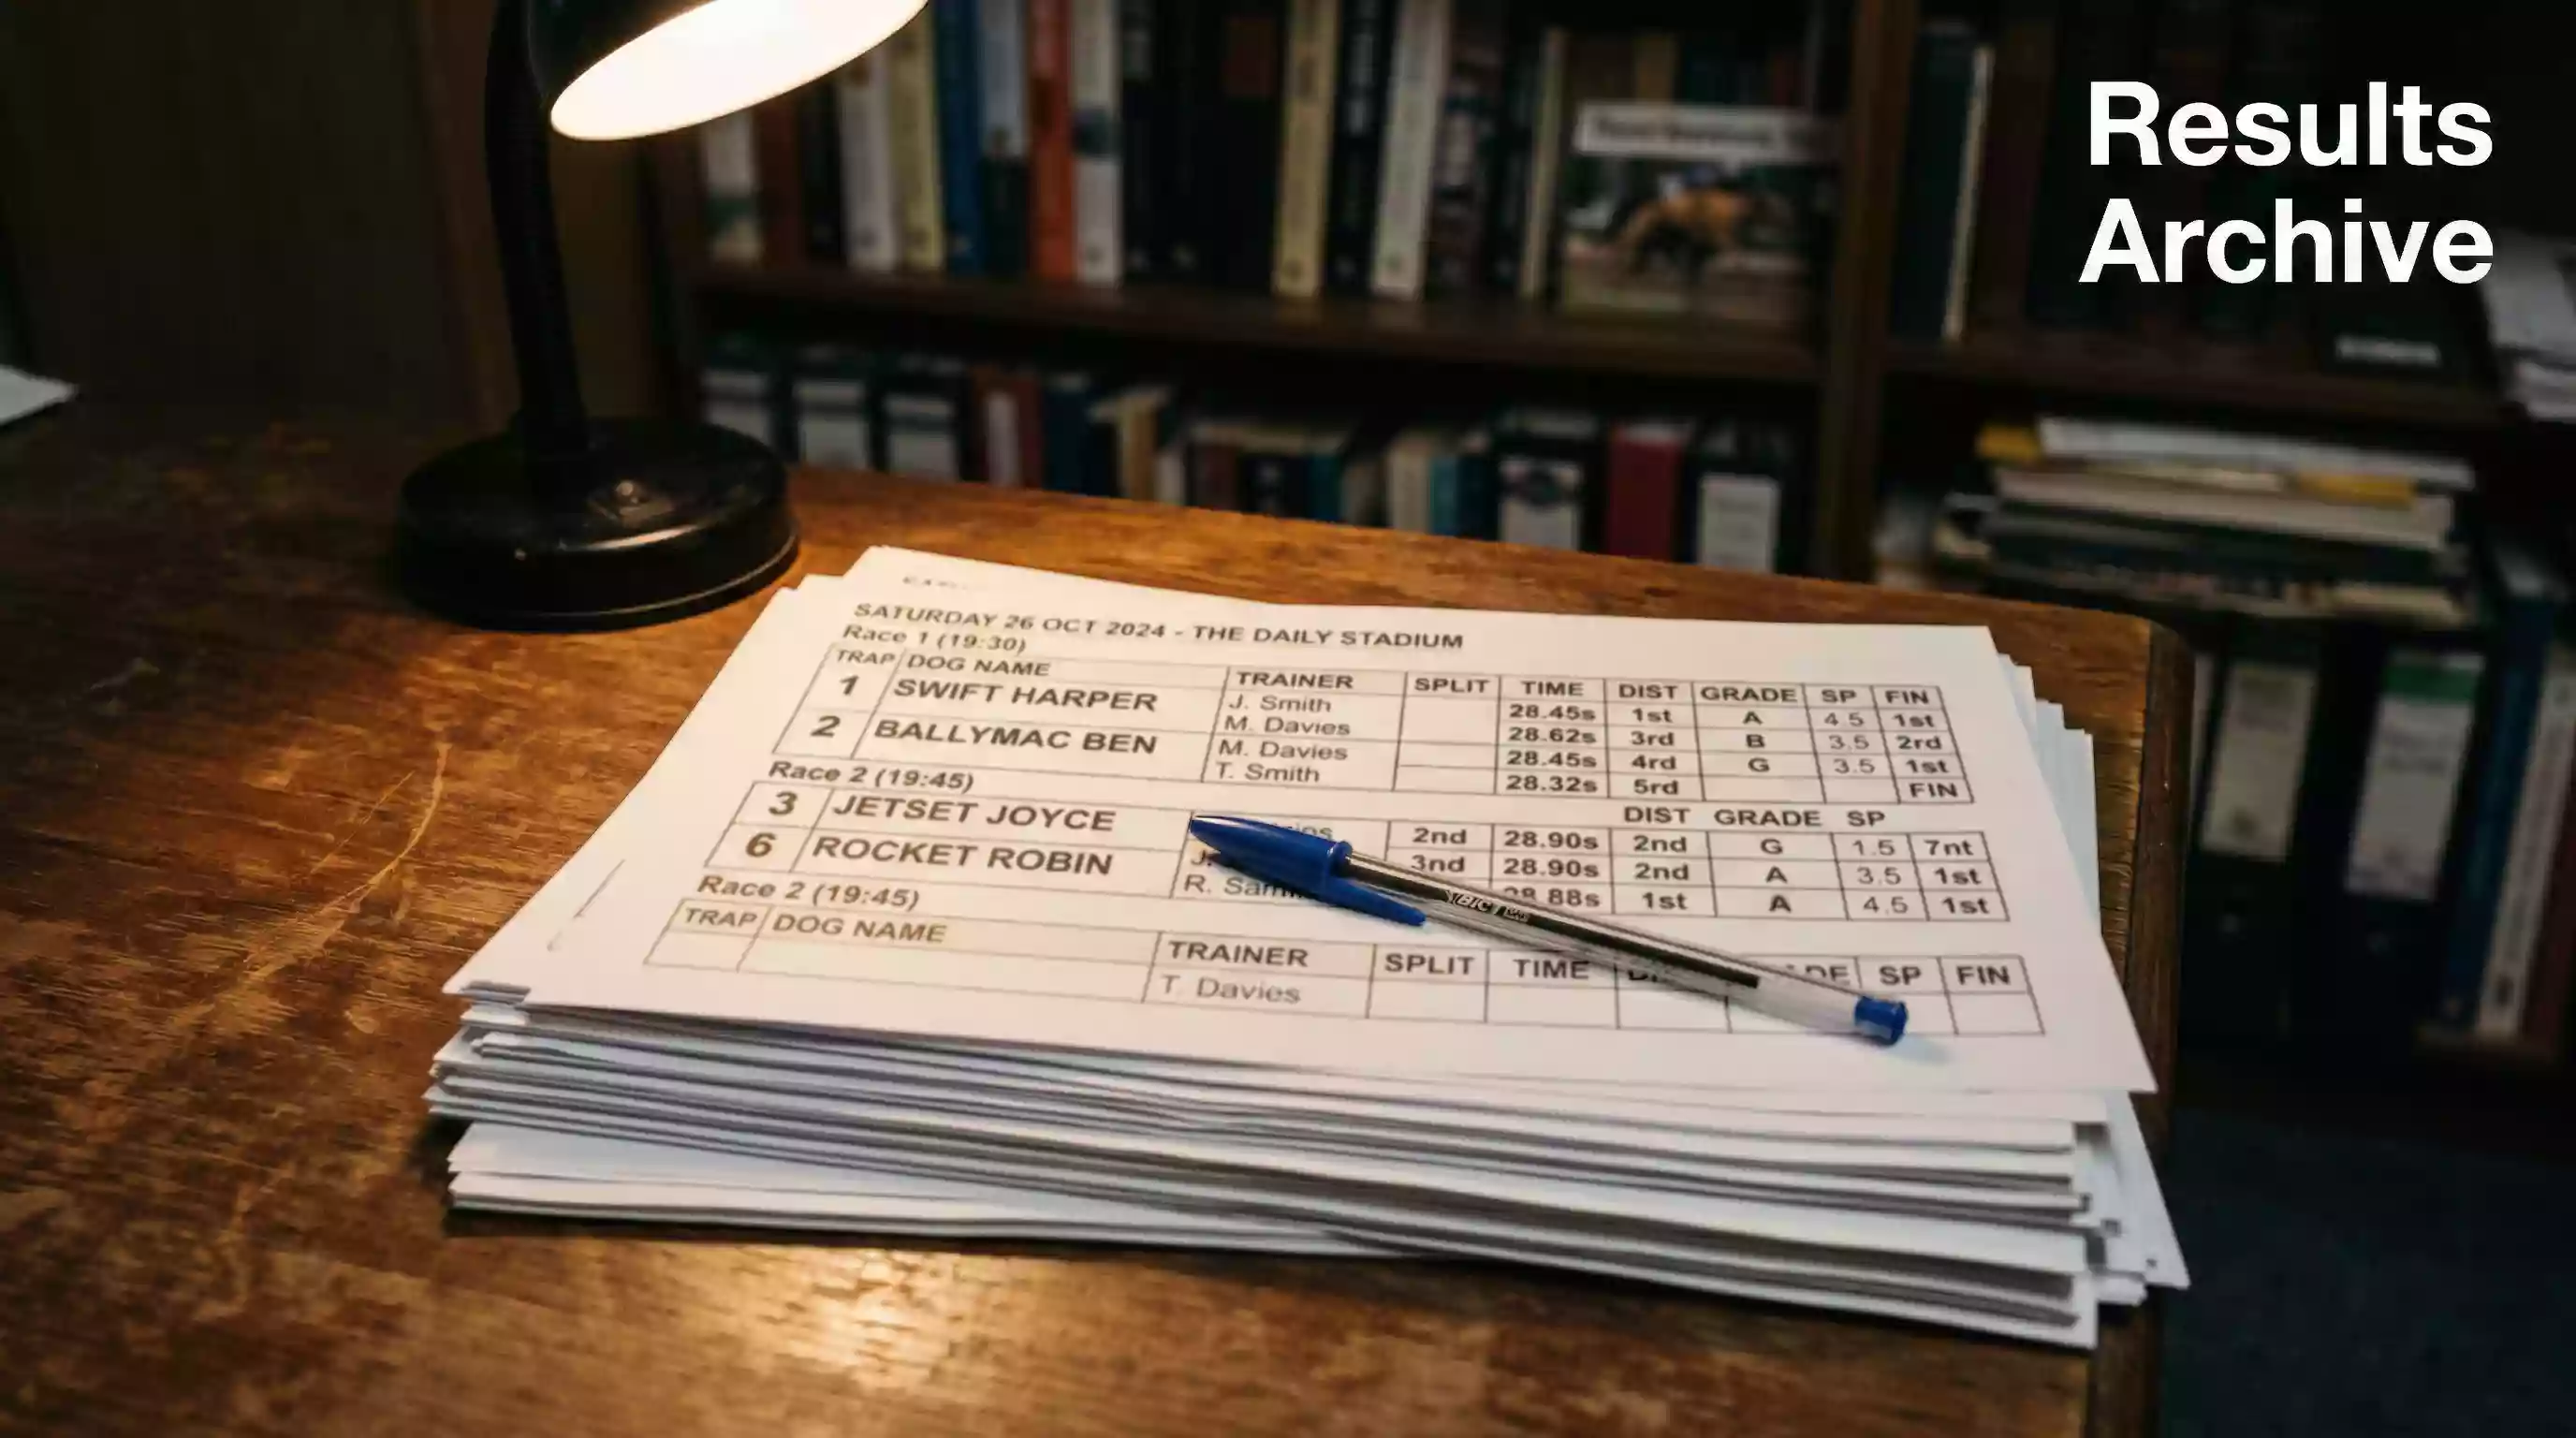 Results
Archive
SATURDAY 26 OCT 2024 - THE DAILY STADIUM
Race 1 (19:30)
TRAP DOG NAME TRAINER SPLIT TIME DIST GRADE SP FIN
1 SWIFT HARPER J. Smith 28.45s 1st A 4.5 1st
M. Davies 28.62s 3rd B 3.5 2rd
2 BALLYMAC BEN M. Davies 28.45s 4rd G 3.5 1st
T. Smith 28.32s 5rd FIN
Race 2 (19:45)
DIST GRADE SP
3 JETSET JOYCE 2nd 28.90s 2nd G 1.5 7nt
6 ROCKET ROBIN J. 3nd 28.90s 2nd A 3.5 1st
R. 88s 1st A 4.5 1st
Race 2 (19:45)
TRAP DOG NAME TRAINER SPLIT TIME SP FIN
T. Davies
BIC